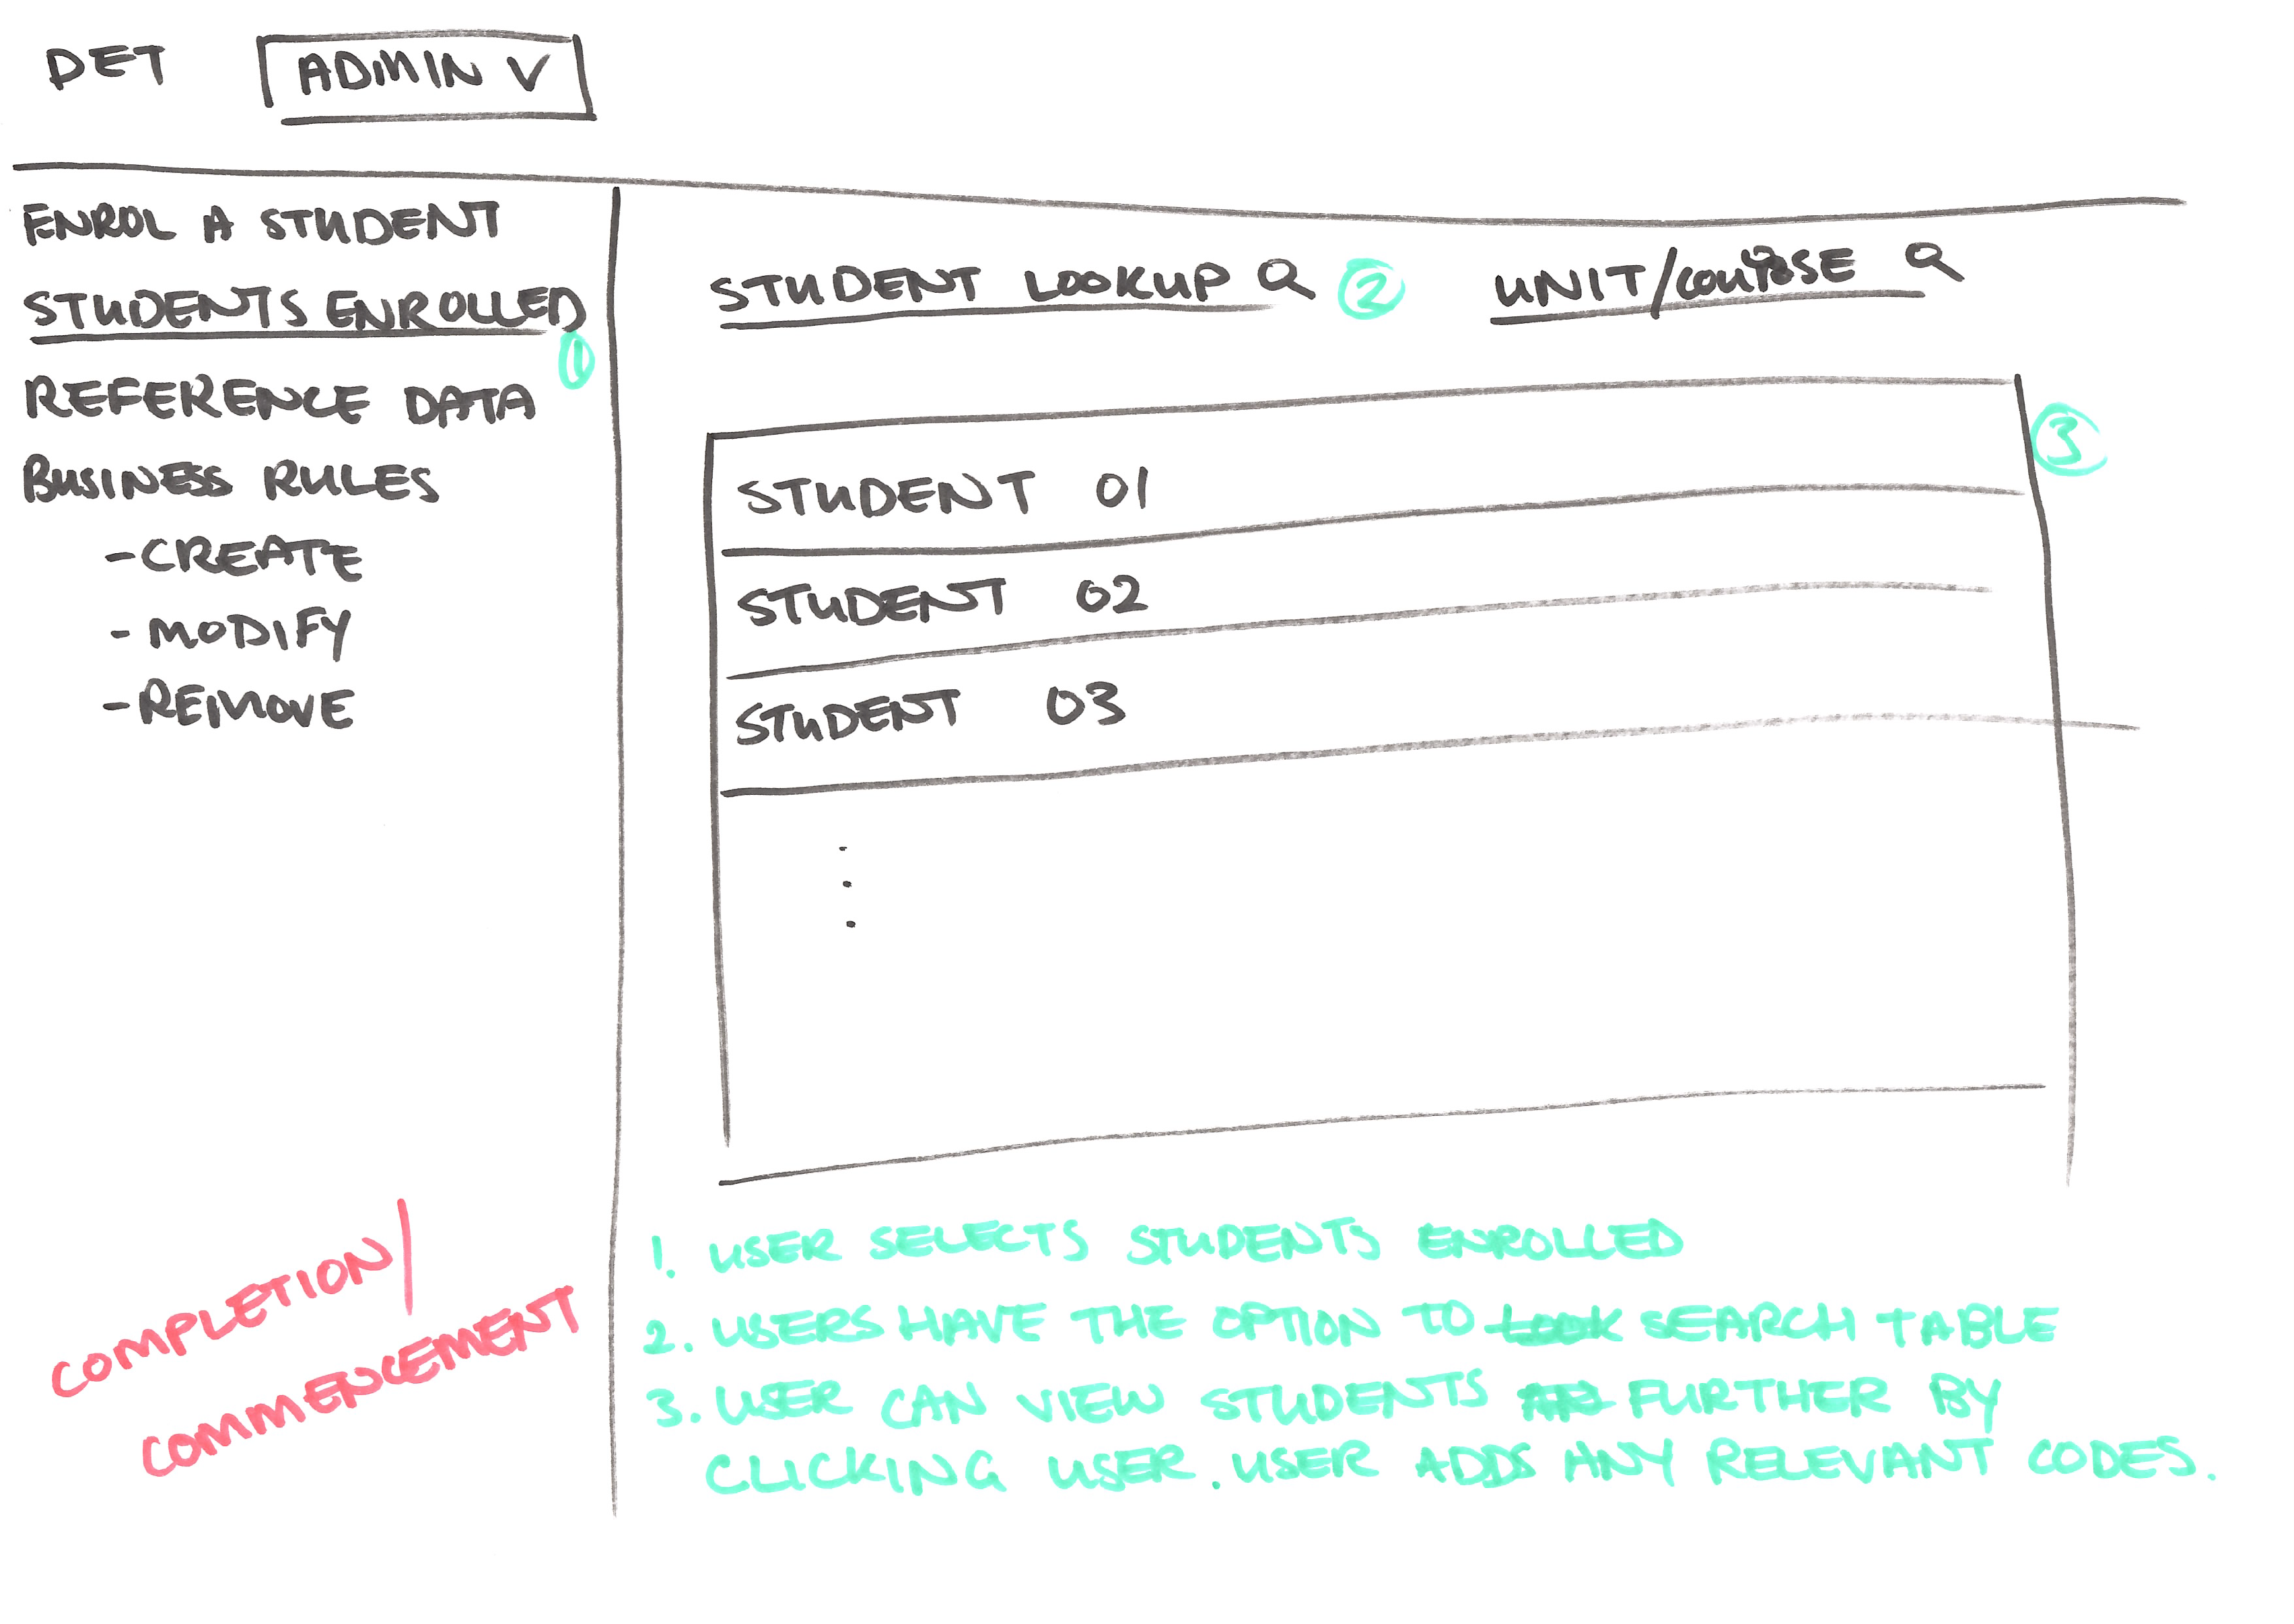 DET
ADMIN V
ENROL A STUDENT
STUDENTS ENROLLED
1
REFERENCE DATA
BUSINESS RULES
- CREATE
- MODIFY
- REMOVE
STUDENT LOOKUP
2
UNIT/COURSE
3
STUDENT 01
STUDENT 02
STUDENT 03
COMPLETION/
COMMENCEMENT
1. USER SELECTS STUDENTS ENROLLED
2. USERS HAVE THE OPTION TO LOOK SEARCH TABLE
3. USER CAN VIEW STUDENTS FURTHER BY
CLICKING USER. USER ADDS ANY RELEVANT CODES.